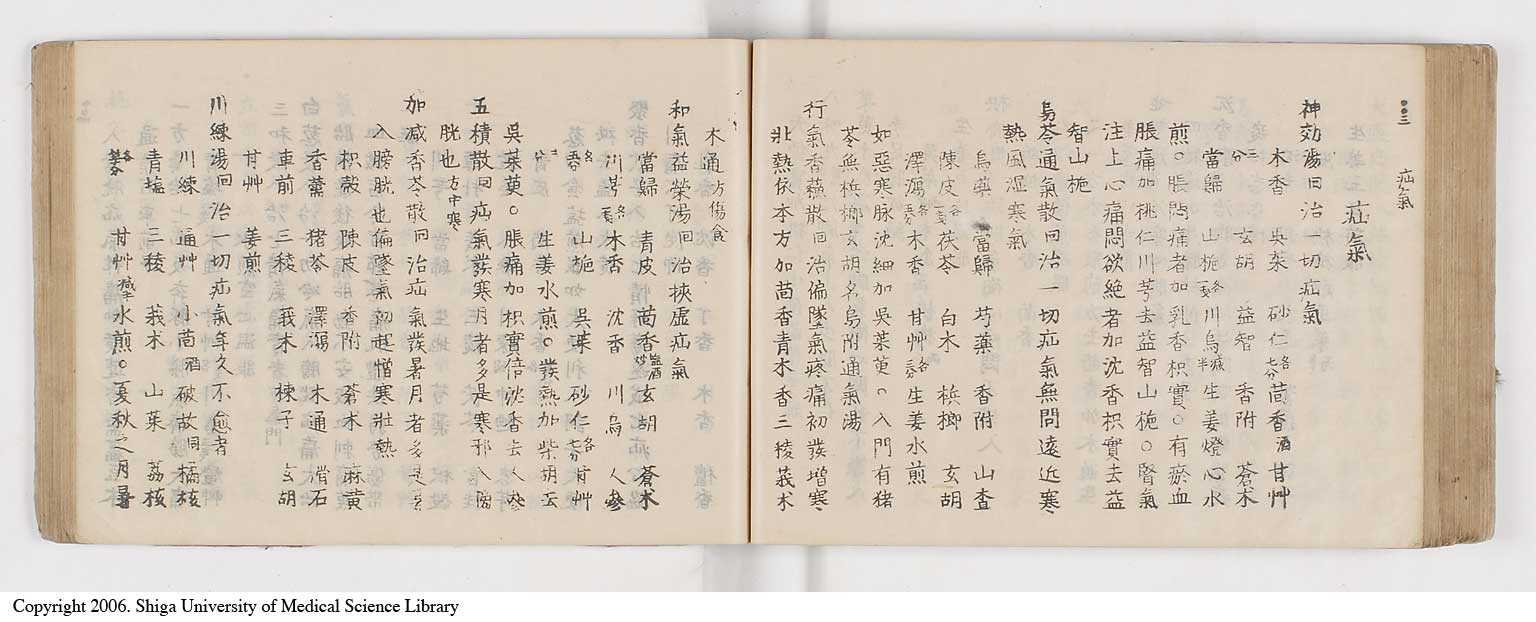 疝氣
疝氣
神効湯曰治一切疝氣
木香 吳茱 砂仁各七分 茴香酒 甘艸
三分 玄胡 益智 香附 蒼朮
當歸 山梔各一戔 川烏半 生姜燈心水
煎○脹悶痛者加乳香枳實○有瘀血
脹痛加桃仁川芎去益智山梔○腎氣
注上心痛悶欲絶者加沈香枳實去益
智山梔
烏苓通氣散曰治一切疝氣無問遠近寒
熱風湿寒氣
烏藥 當歸 芍藥 香附 山査
陳皮各一戔 茯苓 白朮 檳榔 玄胡
澤瀉各五分 木香 甘艸各三分 生姜水煎
如惡寒脉沈細加吳茱萸○入門有猪
苓無檳榔玄胡名烏附通氣湯
行氣香蘓散曰治偏墜氣疼痛初發增寒
壯熱依本方加茴香青木香三稜莪朮
木通方傷食
和氣益榮湯曰治挾虚疝氣
當歸 青皮 茴香塩酒炒 玄胡 蒼朮
川芎各一戔 木香 沈香 川烏 人參
各五分 山梔 吳茱 砂仁各七分 甘艸
三分 生姜水煎○發熱加柴胡去
吳茱萸○脹痛加枳實倍沈香去人參
五積散曰疝氣發寒月者多是寒邪入膀
胱也方中寒
加减香苓散曰治疝氣發暑月者多是暑
入膀胱也偏墜氣初起憎寒壯熱
枳殼 陳皮 香附 蒼朮 麻黄
香薷 猪苓 澤瀉 木通 滑石
車前 三稜 莪朮 楝子 玄胡
甘艸 姜煎
川練湯曰治一切疝氣年久不愈者
川練 通艸 小茴酒 破故同 橘核
青塩 三稜 莪朮 山茱 荔核
甘艸减半 水煎○夏秋之月暑